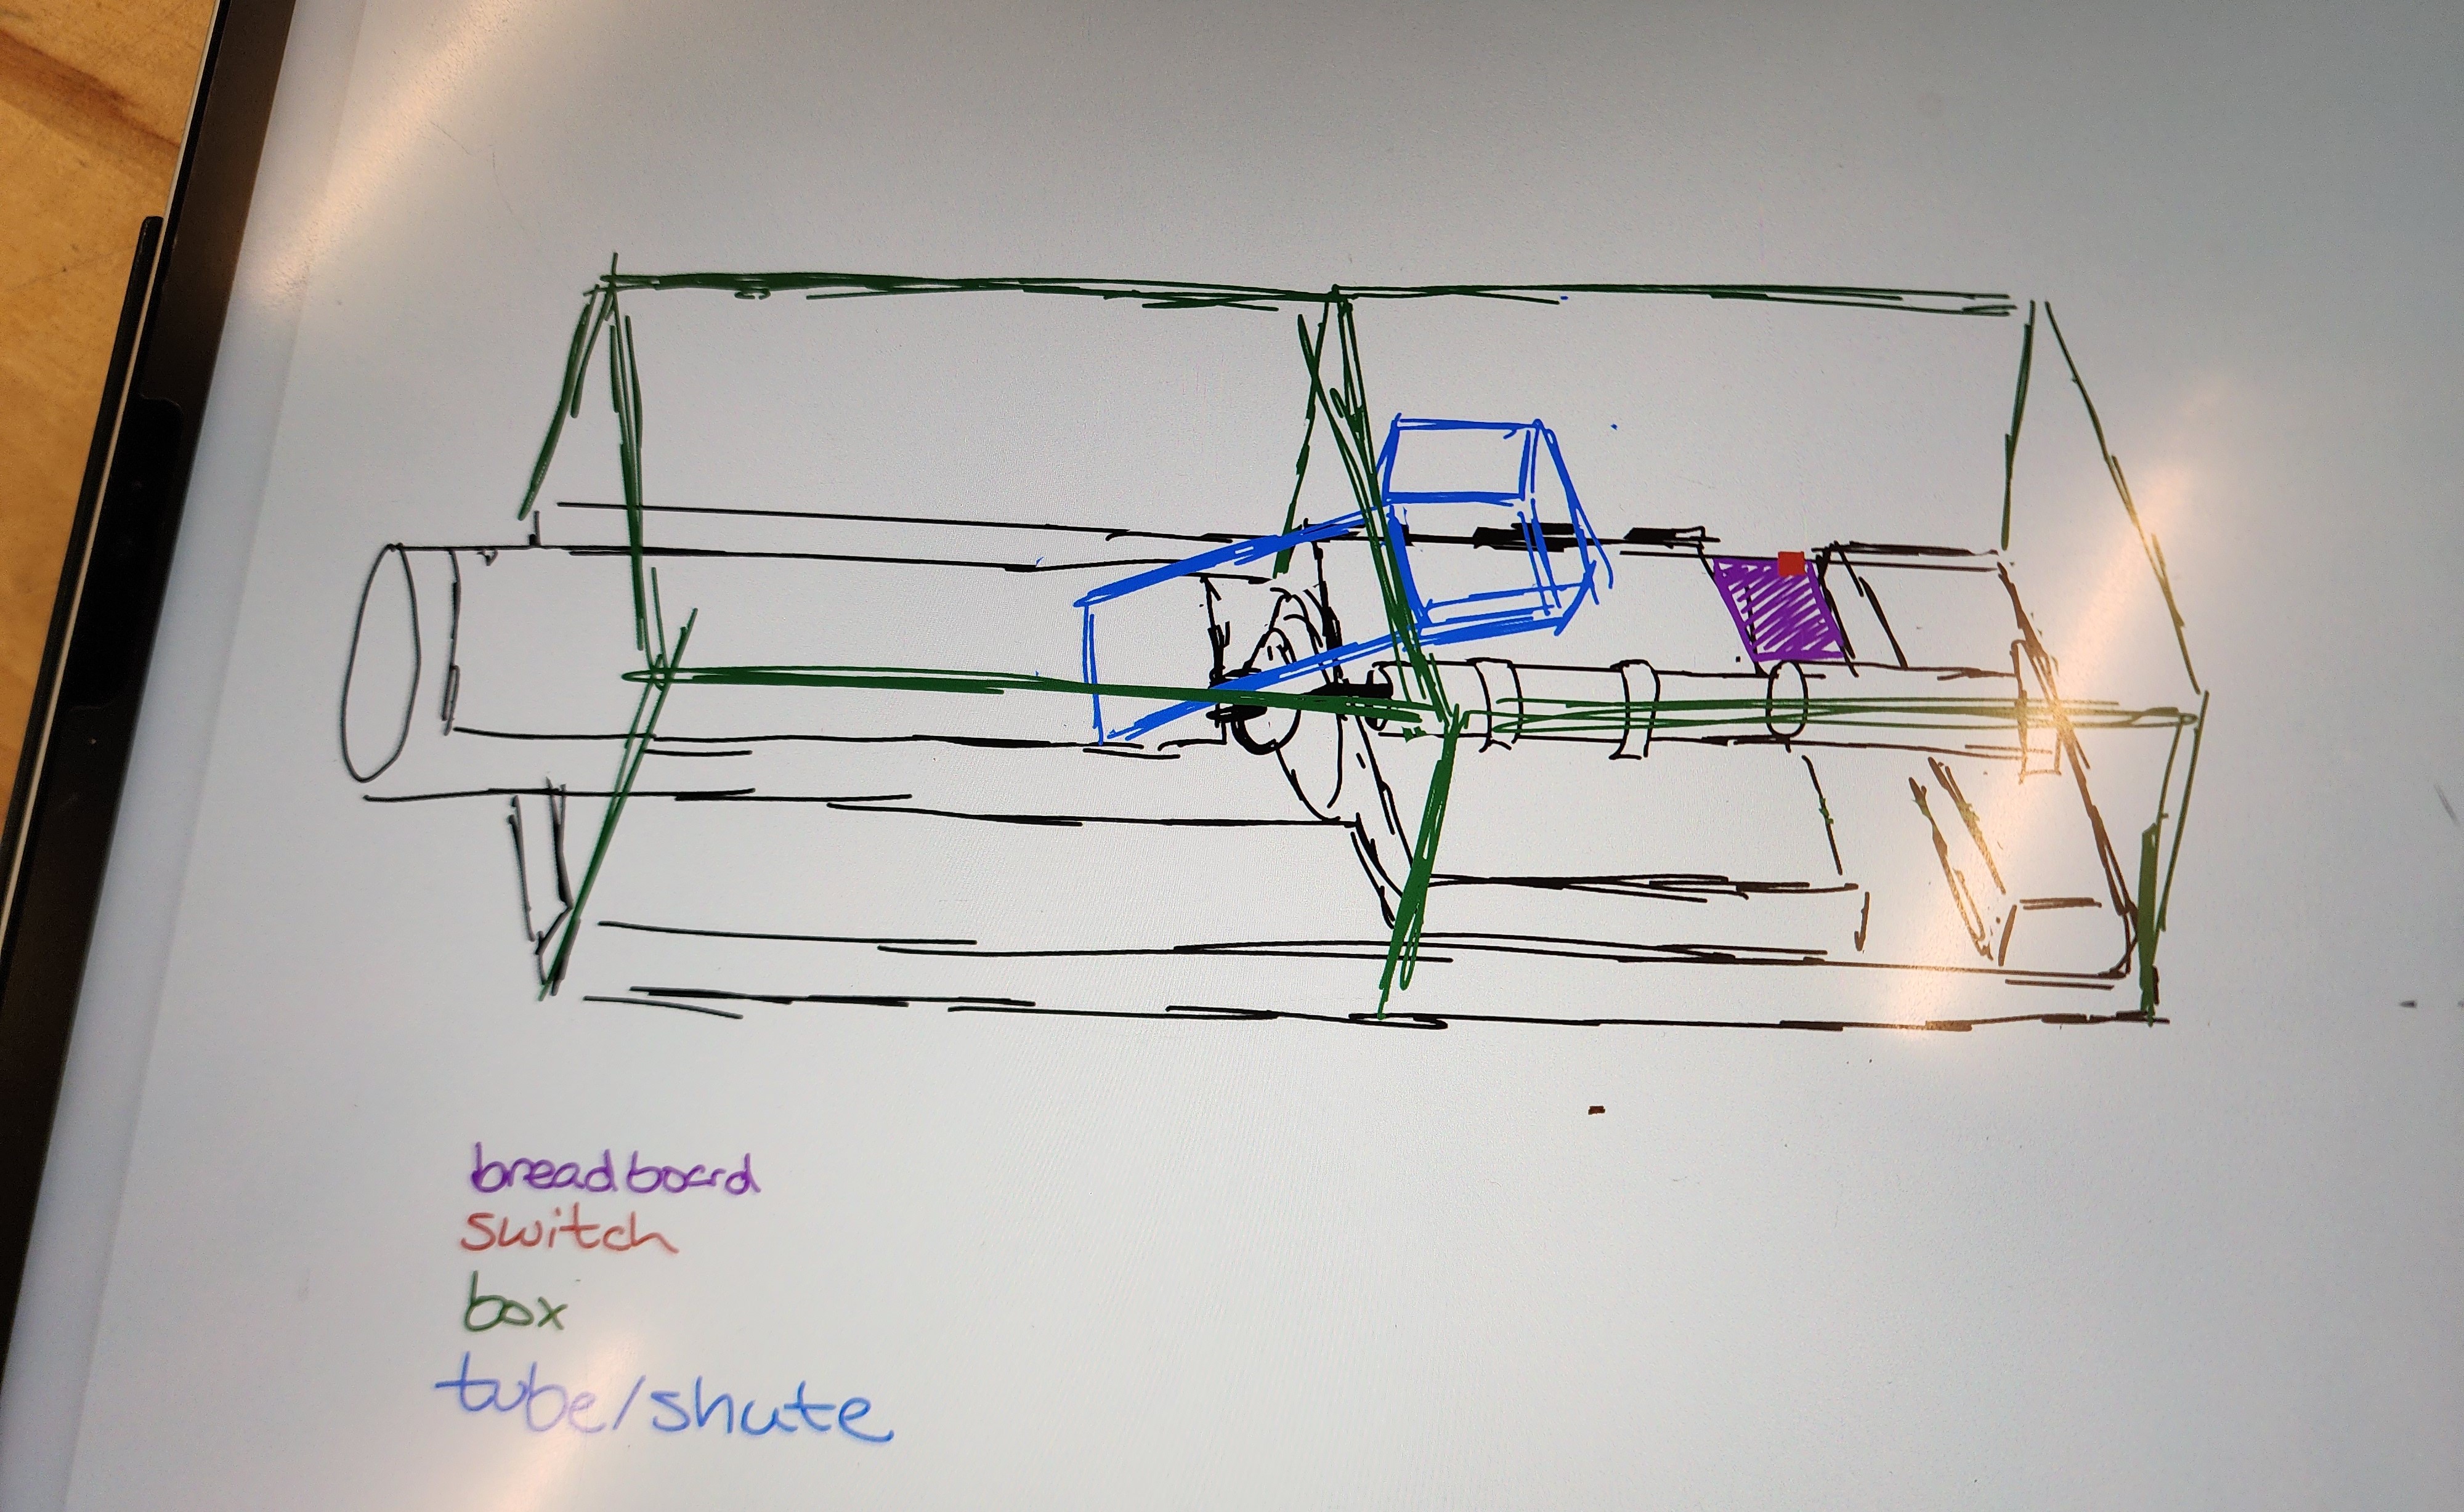 breadboard
switch
box
tube/shute